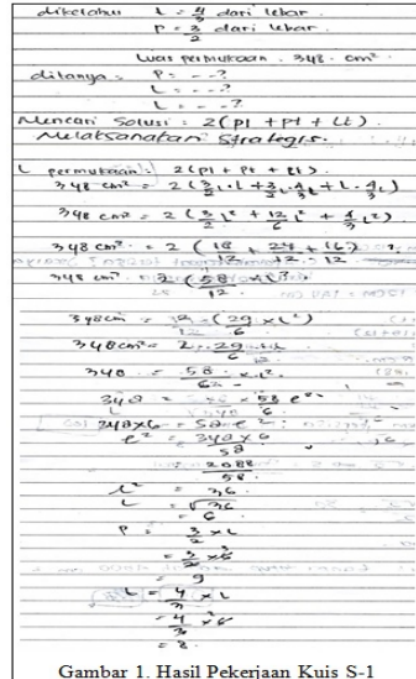 diketahui t = 4/3 dari lebar.
P = 3/2 dari lebar.
Luas permukaan . 348 . cm²
ditanya = P = - - ?
L = - - ?
t = - - ?
Mencari Solusi = 2(pl + pt + lt).
Melaksanakan Strategis.
L permukaan = 2(pl + pt + lt).
348 cm² = 2(3/2 l . l + 3/2 l . 4/3 l + l . 4/3 l)
348 cm² = 2(3/2 l² + 12/6 l² + 4/3 l²)
348 cm² = 2(18/12 + 24/12 + 16/12)
348 cm² 2(58/12 × l²
348 cm² = 2(29/6 × l²)
348 cm² = 2 . 29/6
348 = 58/6 × l²
348 = 58/6 l²
348 × 6 = 58 l²
l² = 348 × 6/58
2088/58
l² = 36.
L = √36
= 6
P = 3/2 × L
= 3/2 × 6
= 9
t = 4/3 × L
= 4/3 × 6
= 8.
Gambar 1. Hasil Pekerjaan Kuis S-1